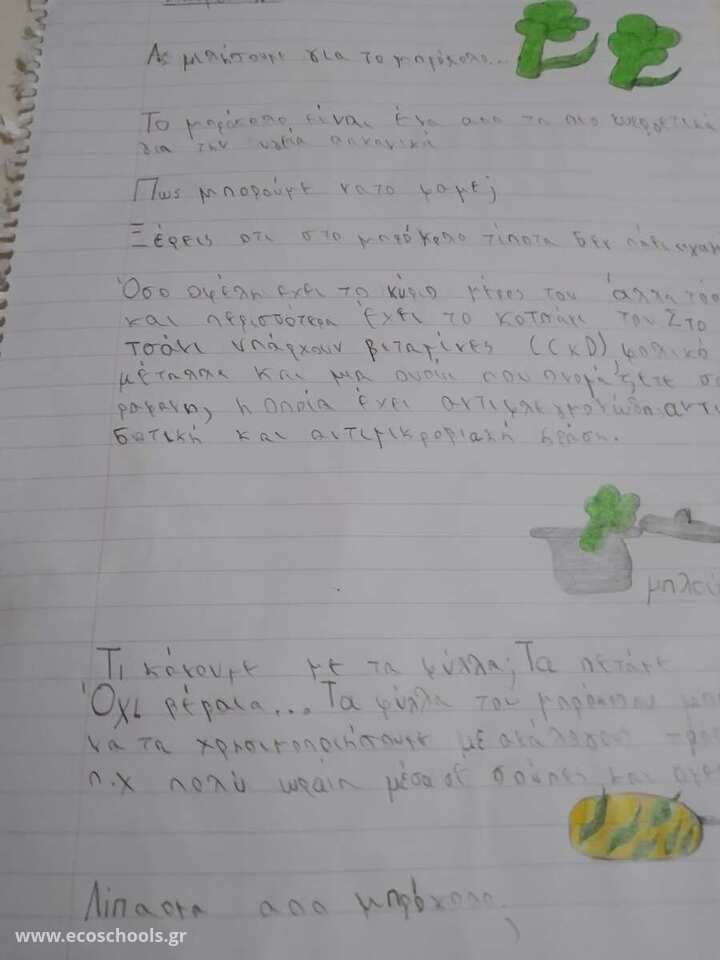 Ας μιλήσουμε για το μπρόκολο...
Το μπρόκολο είναι ένα απο τα πιο ευεργετικά
για την υγεία λαχανικά
Πως μπορούμε να το φαμε;
Ξέρεις οτι στο μπρόκολο τίποτα δεν πάει χαμ
Όσο οφέλη εχει το κύριο μέρος του άλλα τόσ
και περισσότερα έχει το κοτσάνι του Στο
τσάνι υπάρχουν βιταμίνες (C κ D) φολικό
μέταλλα και μια ουσία που ονομάζετε σ
ραφανη, η οποία έχει αντιφλεγμονώδη αντι
βιοτική και αντιμικροβιακή δράση.
μπλεν
Τι κάνουμε με τα φύλλα; Τα πετάμε
Όχι βέβαια... Τα φύλλα του μπρόκολου μπο
να τα χρησιμοποιήσουμε με ανάλογου τροπ
π.χ πολύ ωραία μέσα σε σούπες και ομε
Λίπασμα απο μπρόκολο
www.ecoschools.gr